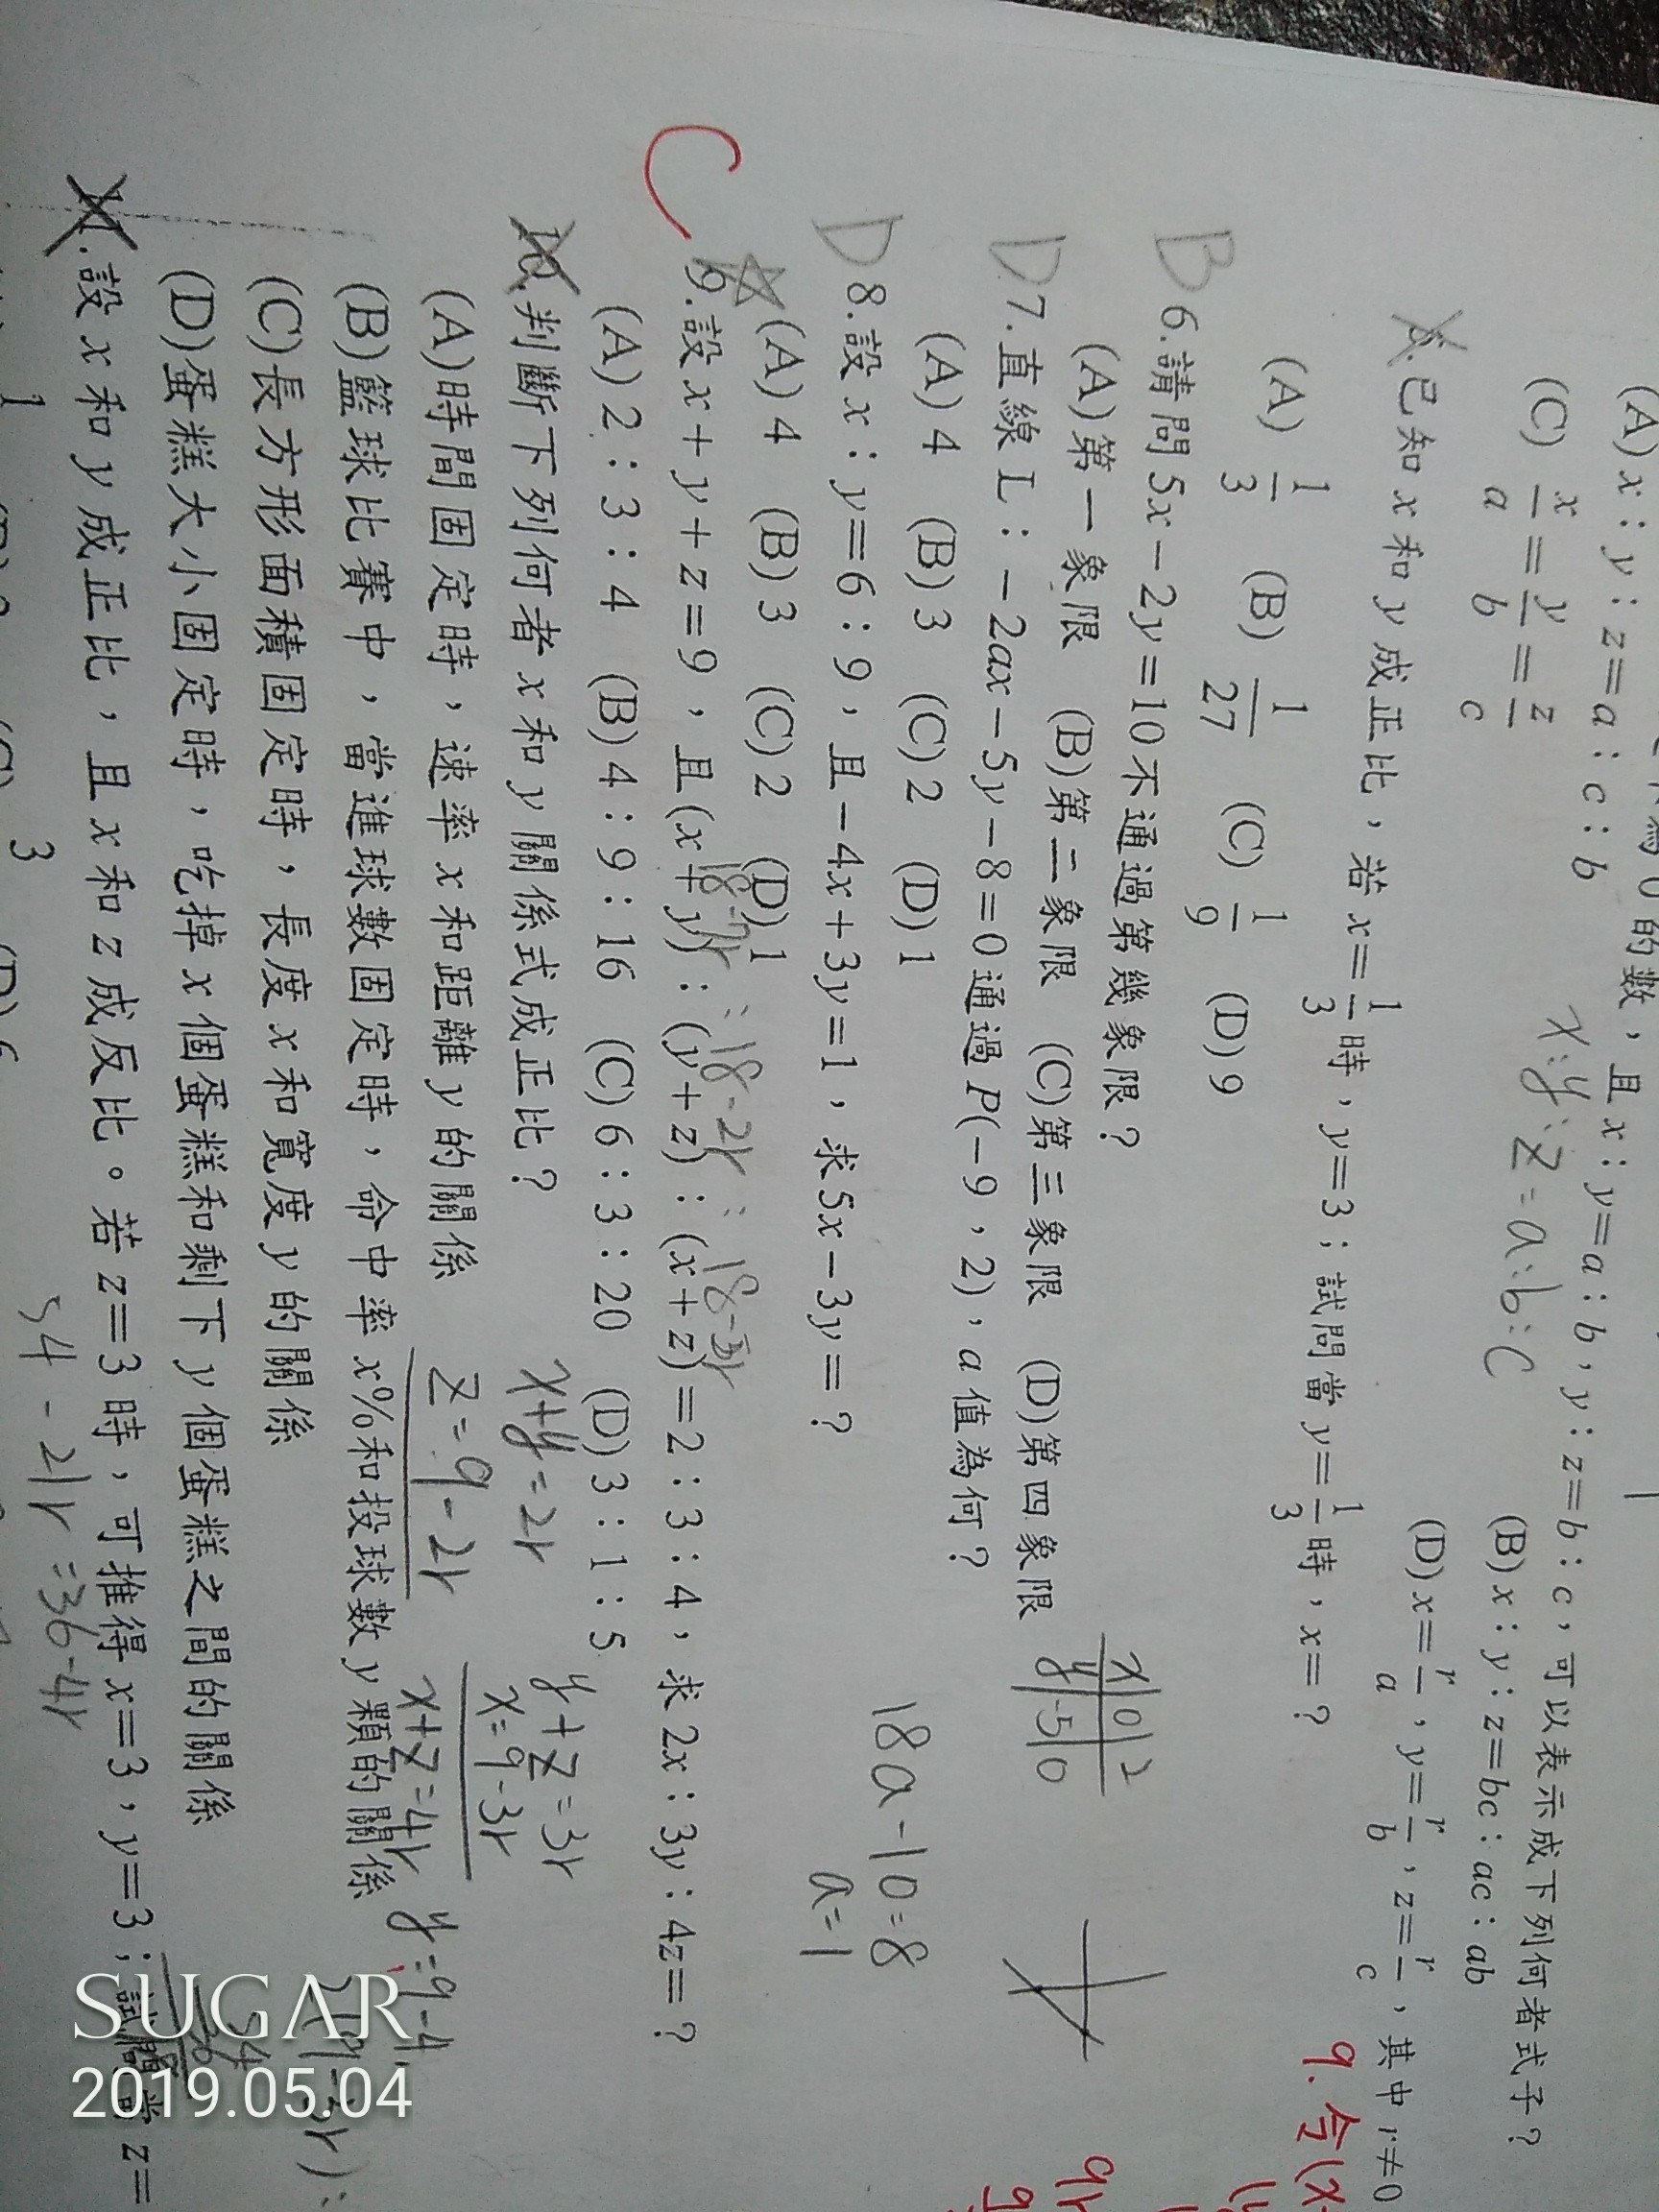 為0的數，且x：y=a：b，y：z=b：c，可以表示成下列何者式子？
(A) x：y：z=a：c：b (B) x：y：z=bc：ac：ab
(C) x/a=y/b=z/c (D) x=r/a，y=r/b，z=r/c，其中r≠0
x:y:z=a:b:c
5.已知x和y成正比，若x=1/3時，y=3；試問當y=1/3時，x=？
(A) 1/3 (B) 1/27 (C) 1/9 (D) 9
9.令(x+
B 6.請問5x－2y=10不通過第幾象限？
(A)第一象限 (B)第二象限 (C)第三象限 (D)第四象限
x 0 2
y -5 0
D 7.直線L：－2ax－5y－8=0通過P(－9，2)，a值為何？
(A) 4 (B) 3 (C) 2 (D) 1
18a-10=8
a=1
D 8.設x：y=6：9，且－4x+3y=1，求5x－3y=？
(A) 4 (B) 3 (C) 2 (D) 1
18-2r : 18-2r : 18-3r
C 9.設x+y+z=9，且(x+y)：(y+z)：(x+z)=2：3：4，求2x：3y：4z=？
(A) 2：3：4 (B) 4：9：16 (C) 6：3：20 (D) 3：1：5
x+y=2r
z=9-2r
y+z=3r
x=9-3r
x+z=4r
y=9-4
10.判斷下列何者x和y關係式成正比？
(A)時間固定時，速率x和距離y的關係
(B)籃球比賽中，當進球數固定時，命中率x%和投球數y顆的關係
(C)長方形面積固定時，長度x和寬度y的關係
(D)蛋糕大小固定時，吃掉x個蛋糕和剩下y個蛋糕之間的關係
11.設x和y成正比，且x和z成反比。若z=3時，可推得x=3，y=3；試問當z=
54-21r=36-4r
SUGAR
2019.05.04